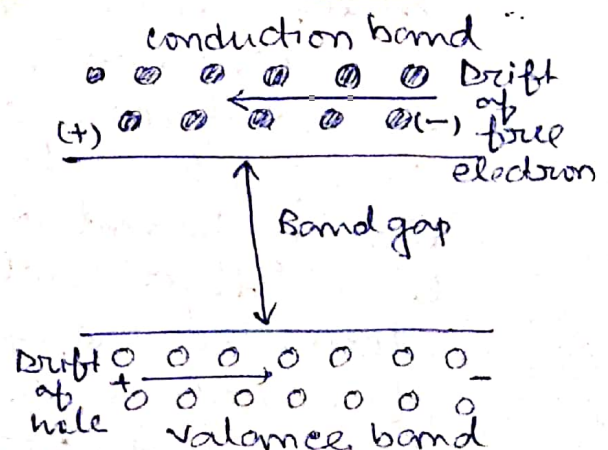 conduction band
Drift
of
(+) (-) free
electron
Band gap
Drift
+ -
of
hole
valance band